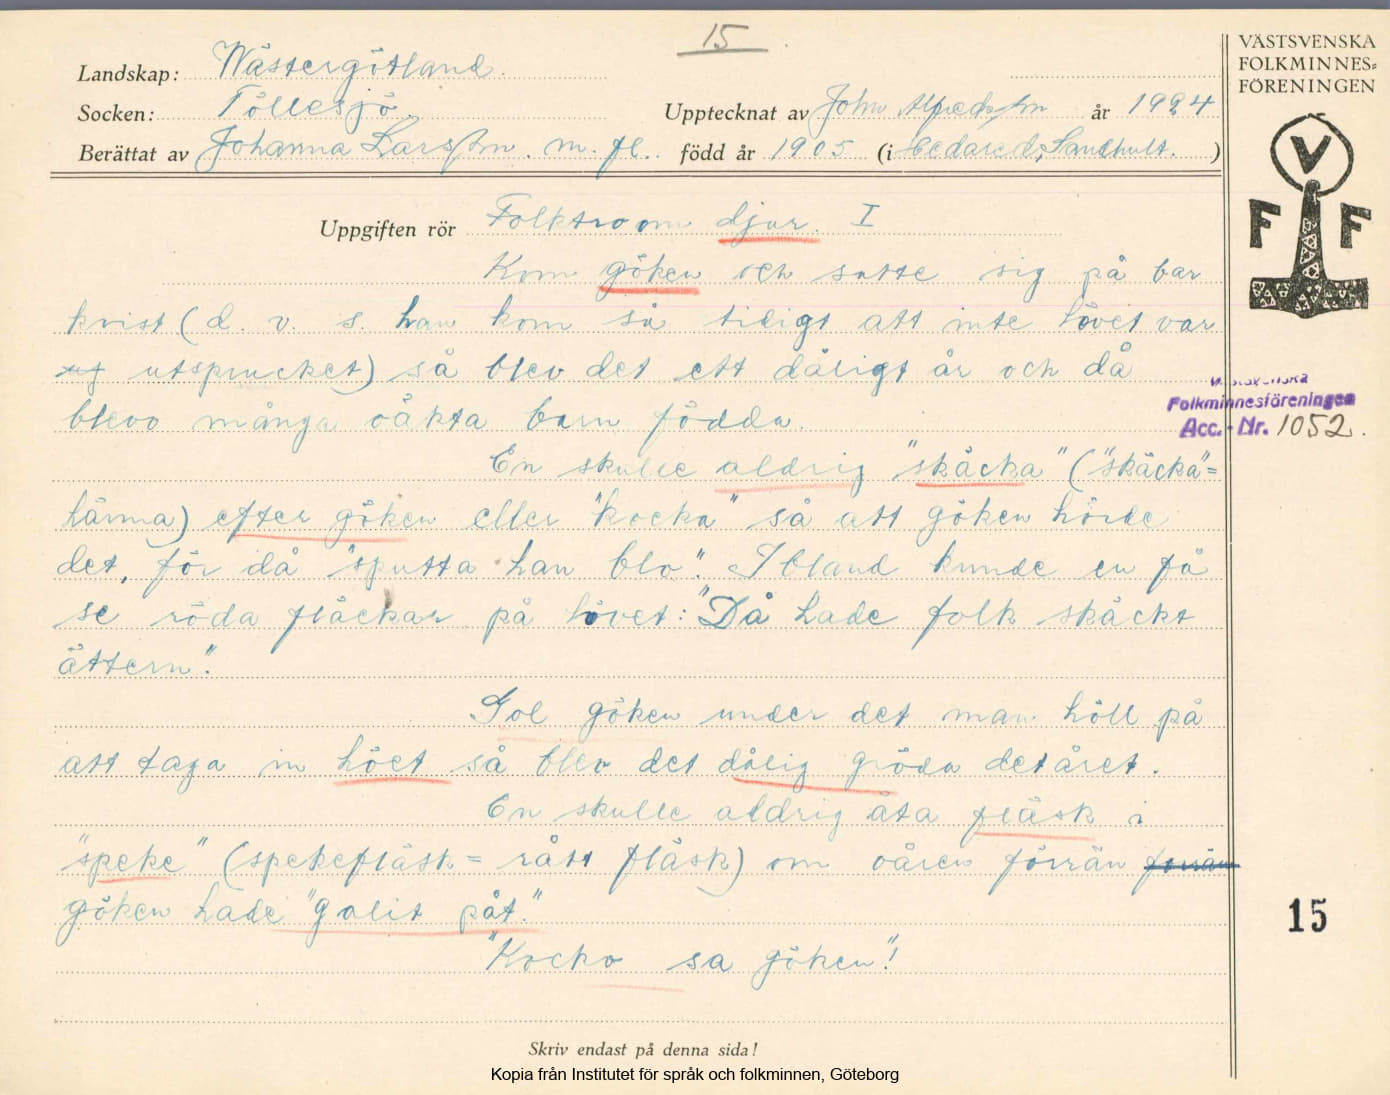 15
VÄSTSVENSKA
FOLKMINNES=
FÖRENINGEN
Landskap: Wästergötland.
Socken: Töllesjö
Upptecknat av John Alfredsson år 1924
Berättat av Johanna Larsson. m. fl.. född år 1905 (i Hedared, Sandhult. )
V
F F
Uppgiften rör Folktro om djur. I
Kom göken och satte sig på bar
kvist (d. v. s. han kom så tidigt att inte lövet var
utsprucket) så blev det ett dåligt år och då
blevo många oäkta barn födda.
Västsvenska
Folkminnesföreningen
Acc.-Nr. 1052.
En skulle aldrig "skäcka" ("skäcka"=
härma) efter göken eller "kocka" så att göken hörde
det, för då "sputta han blo". Ibland kunde en få
se röda fläckar på lövet: "Då hade folk skäckt
ättern".
Gol göken under det man höll på
att taga in höet så blev det dålig gröda det året.
En skulle aldrig äta fläsk i
"speke" (spekefläsk = rått fläsk) om våren förrän förrän
göken hade "galit påt."
"Kocko sa göken"!
15
Skriv endast på denna sida!
Kopia från Institutet för språk och folkminnen, Göteborg